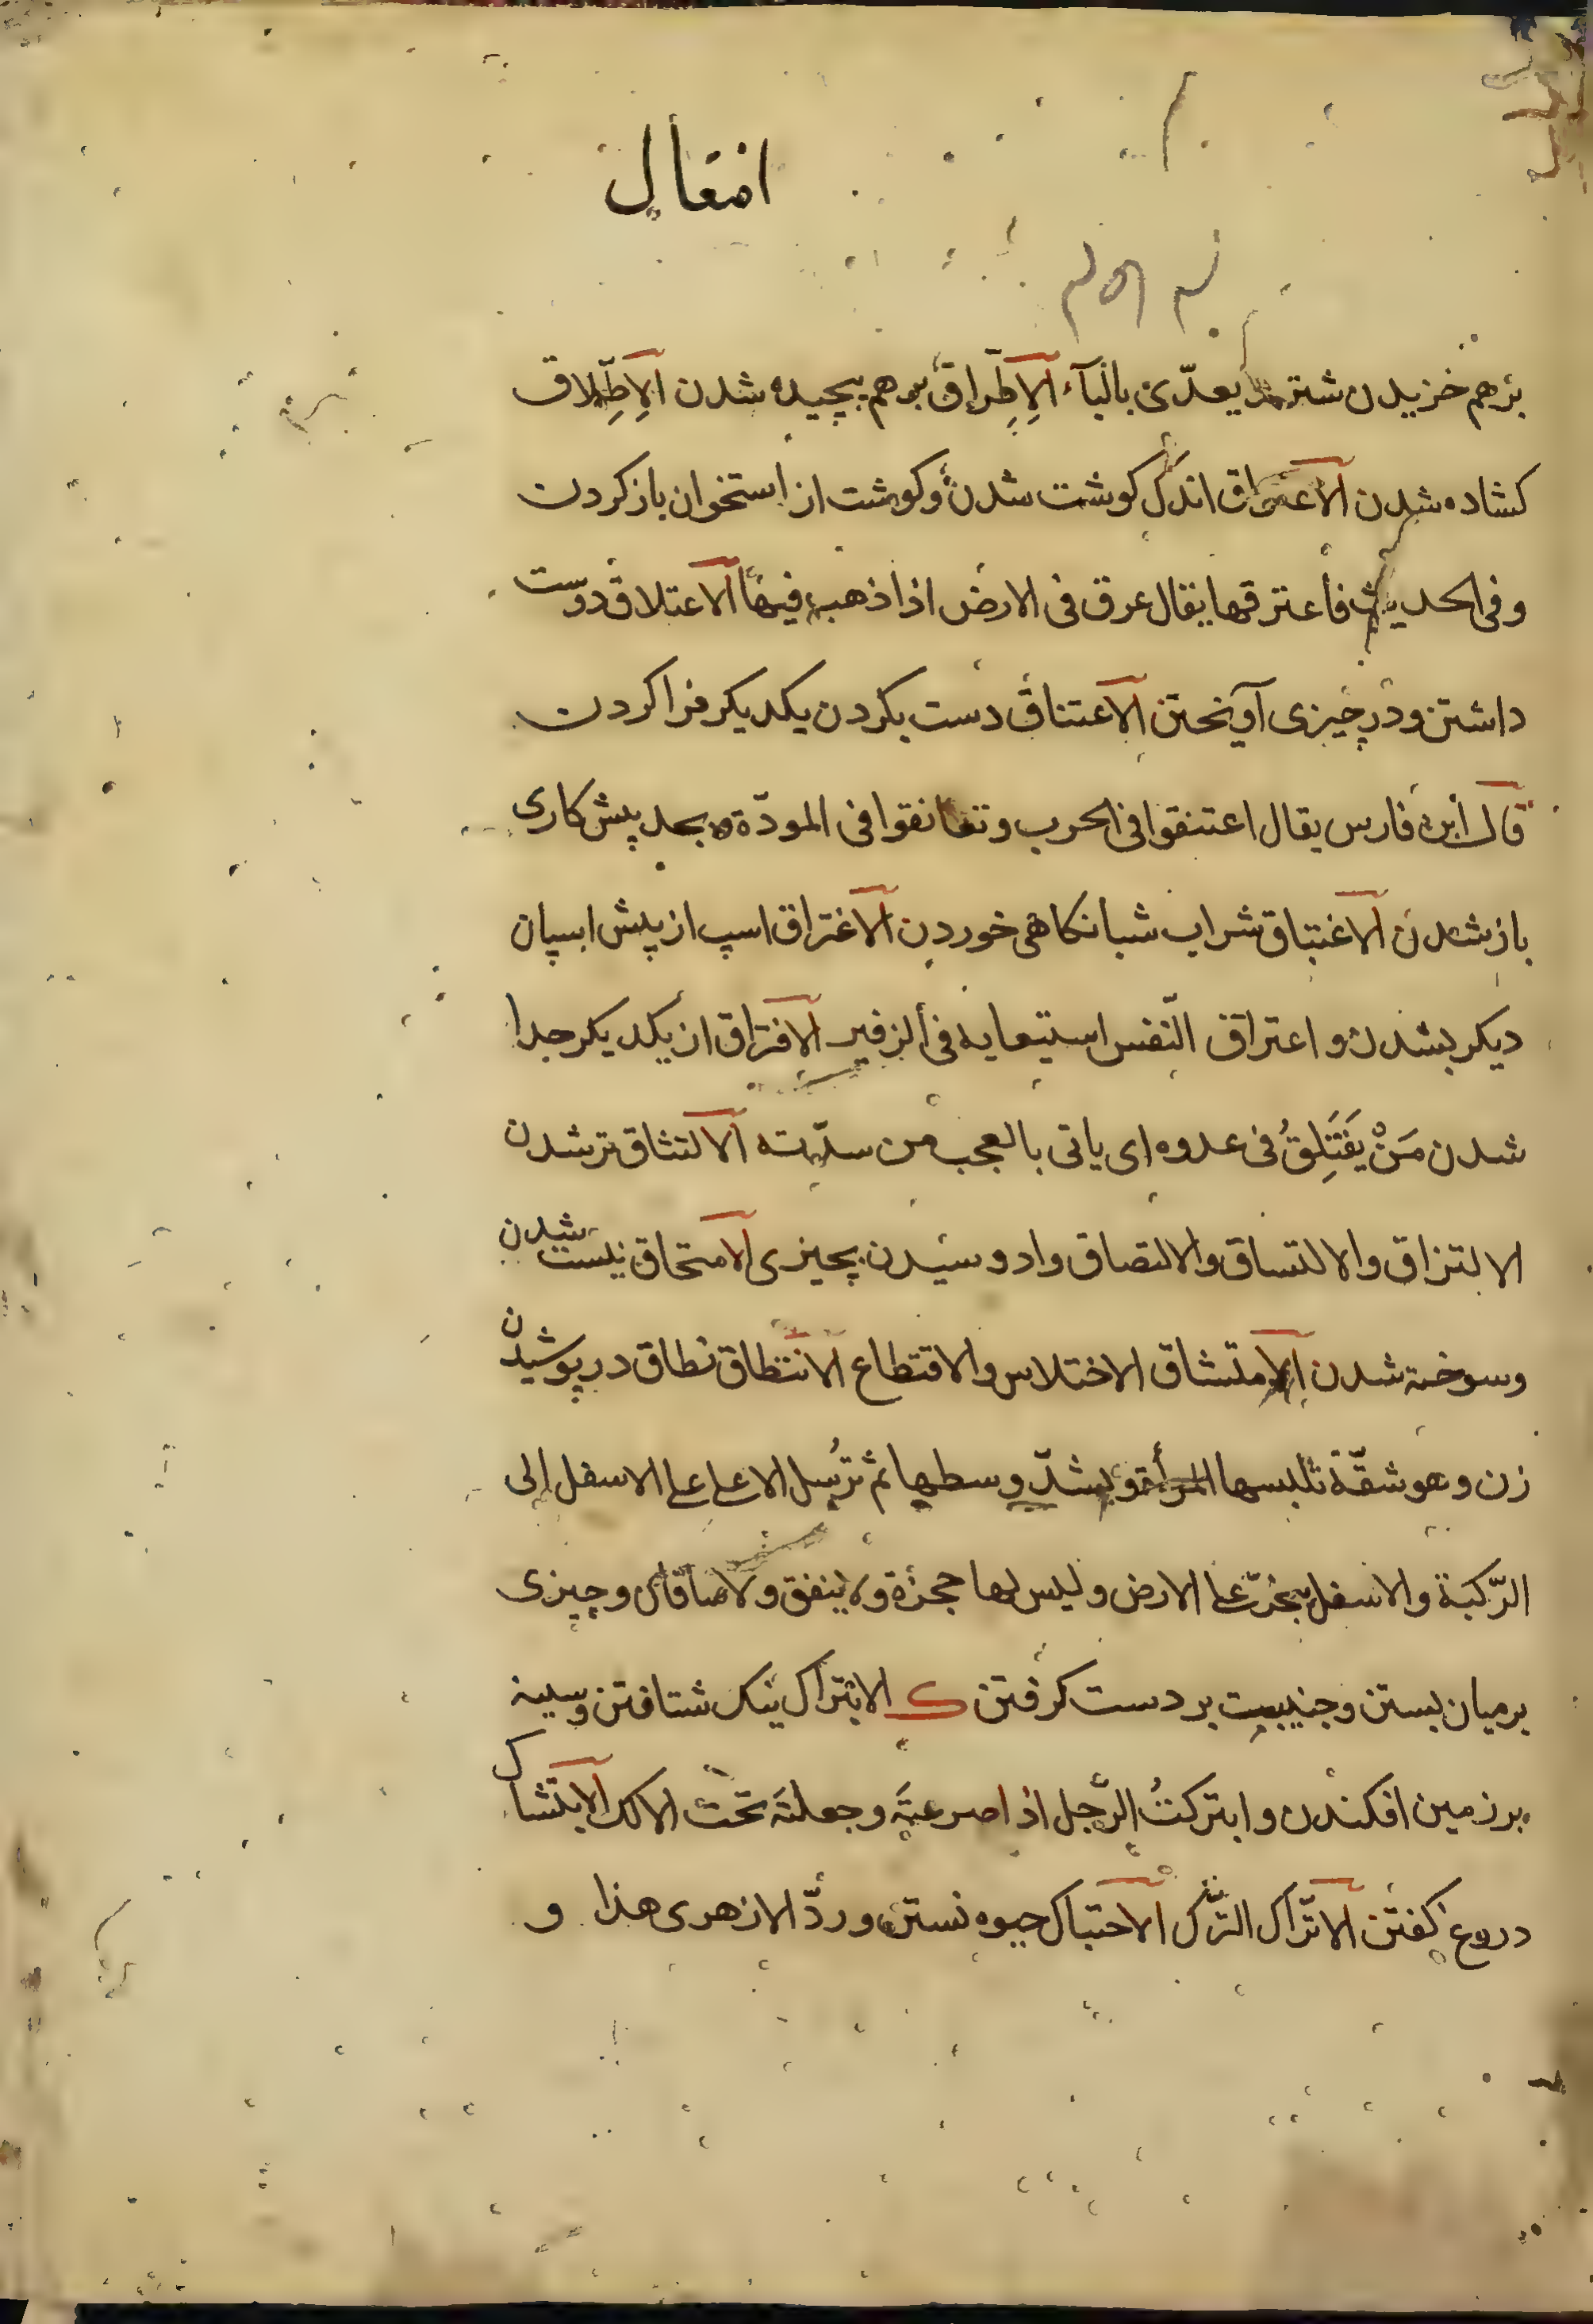 افتعال
برهم خزیدن شتر یعدّی بالبآء الاِطِّراق برهم پیچیده شدن الاِطِّلاق
کشاده شدن الاعتراق اندک کوشت شدن وکوشت از استخوان بازکردن
وفی الحدیث فاعترقها یقال عرق فی الارض اذا ذهب فیها الاعتلاق دوست
داشتن ودر چیزی آویختن الاعتناق دست بکردن یکدیکر فراکردن
قال ابن فارس یقال اعتنقوا فی الحرب وتعانقوا فی المودّة وبجد پیش کاری
باز شدن الاغتباق شراب شبانکاهی خوردن الاغتراق اسپ از پیش اسپان
دیکر بشدن و اغتراق النّفس استیعابه فی الزفیر الافتراق از یکدیکر جدا
شدن مَرَّ یَفْتَلِقُ فی عدوه ای یاتی بالعجب من شدّته الالتثاق تر شدن
الالتزاق والالتساق والالتصاق وادوسیدن بچیزی الامتحاق نیست شدن
وسوخته شدن الامتشاق الاختلاس والاقتطاع الانتطاق نطاق درپوشیدن
زن وهو شقّة تلبسها المرأة ویشدّ وسطها ثم تُرسل الاعلی علی الاسفل الی
الرّکبة والاسفل ینجرّ علی الارض ولیس لها حجزة ولا ینفق ولا ساقان وچیزی
برمیان بستن وجنیبت بر دست کرفتن ک الابتراک نیک شتافتن وسینه
برزمین افکندن وابترکتُ الرّجل اذا صرعتَه وجعلتَه تحت الالک الابتشاک
دروغ کفتن الاتّراک التّرک الاحتباک جیوه نستن وردّ الازهری هذا و